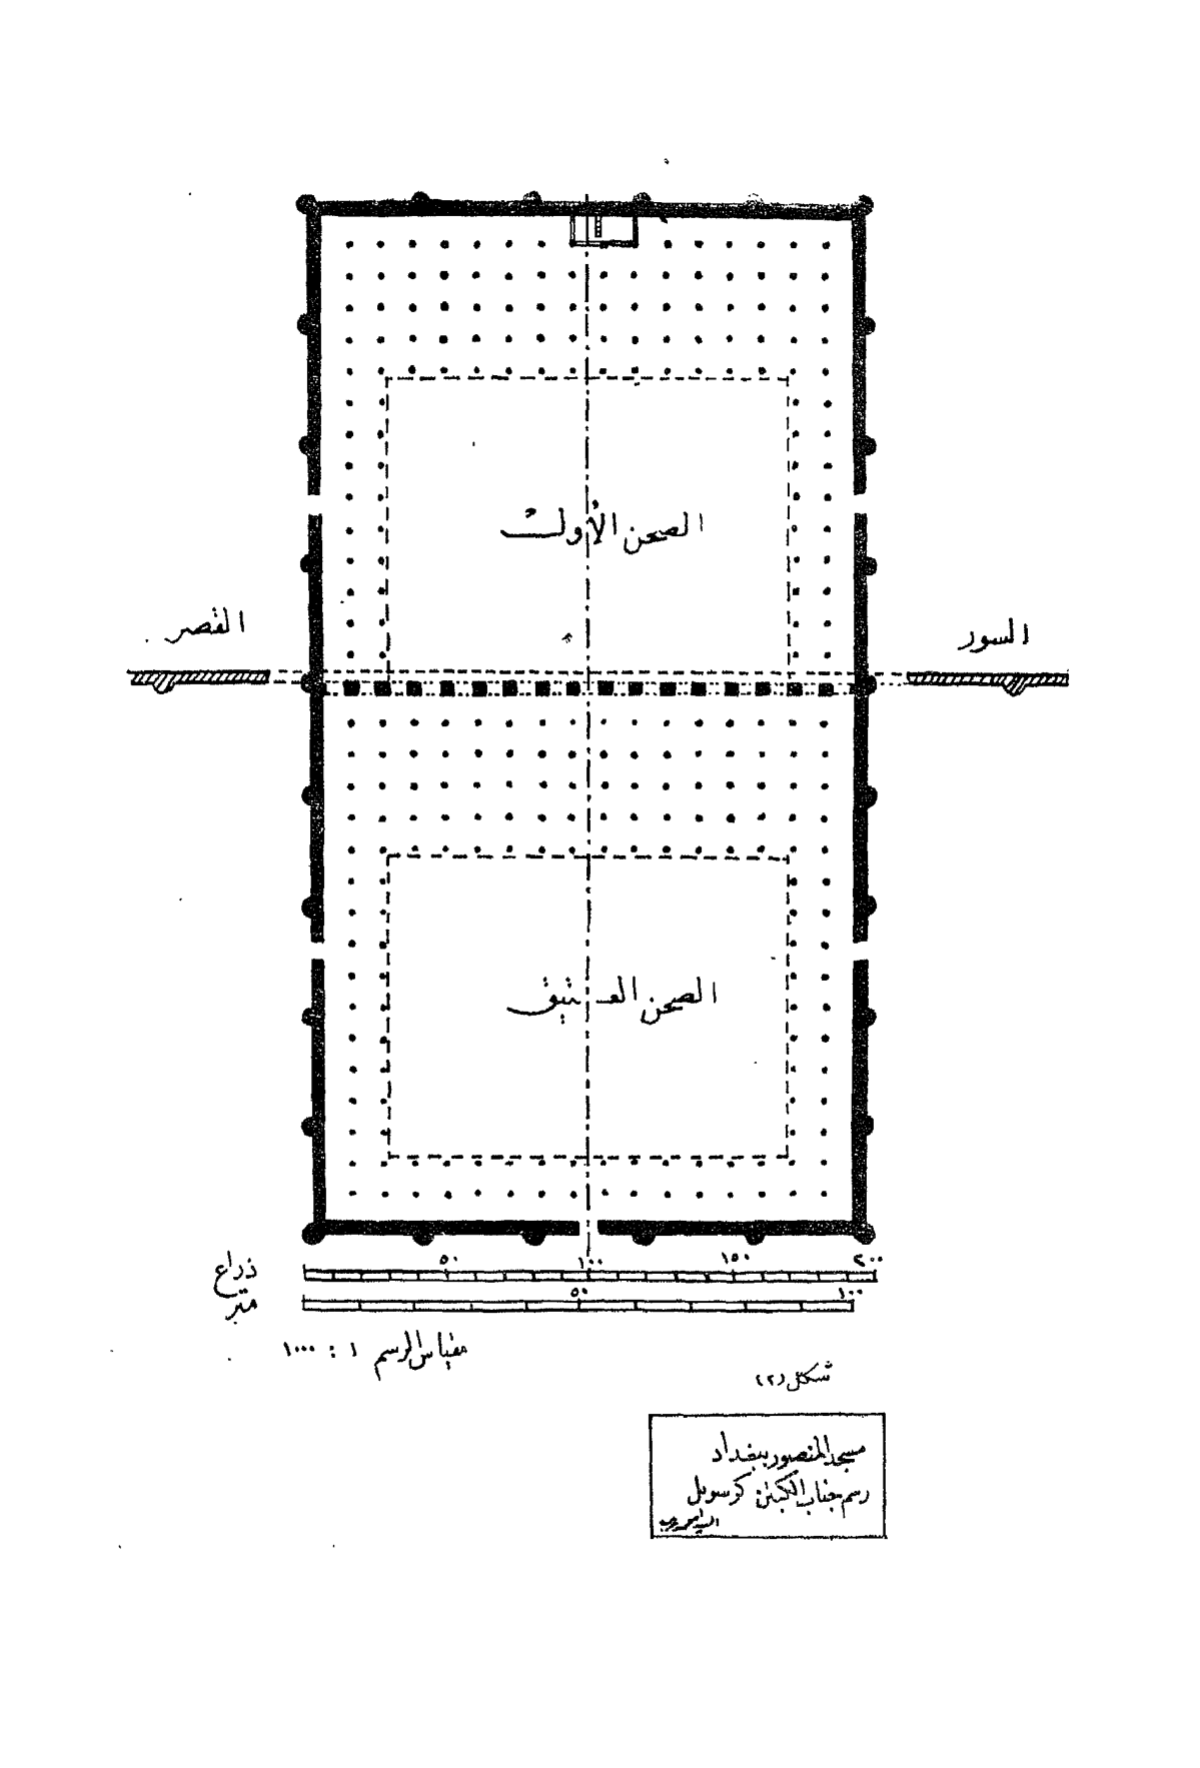 الصحن الأول
القصر
السور
الصحن العتيق
ذراع ٥٠ ١٠٠ ١٥٠ ٢٠٠
متر ٥٠ ١٠٠
مقياس الرسم ١ : ١٠٠٠
شكل (٢)
مسجد المنصور ببغداد
رسم جناب الكبتن كرسويل
السيد